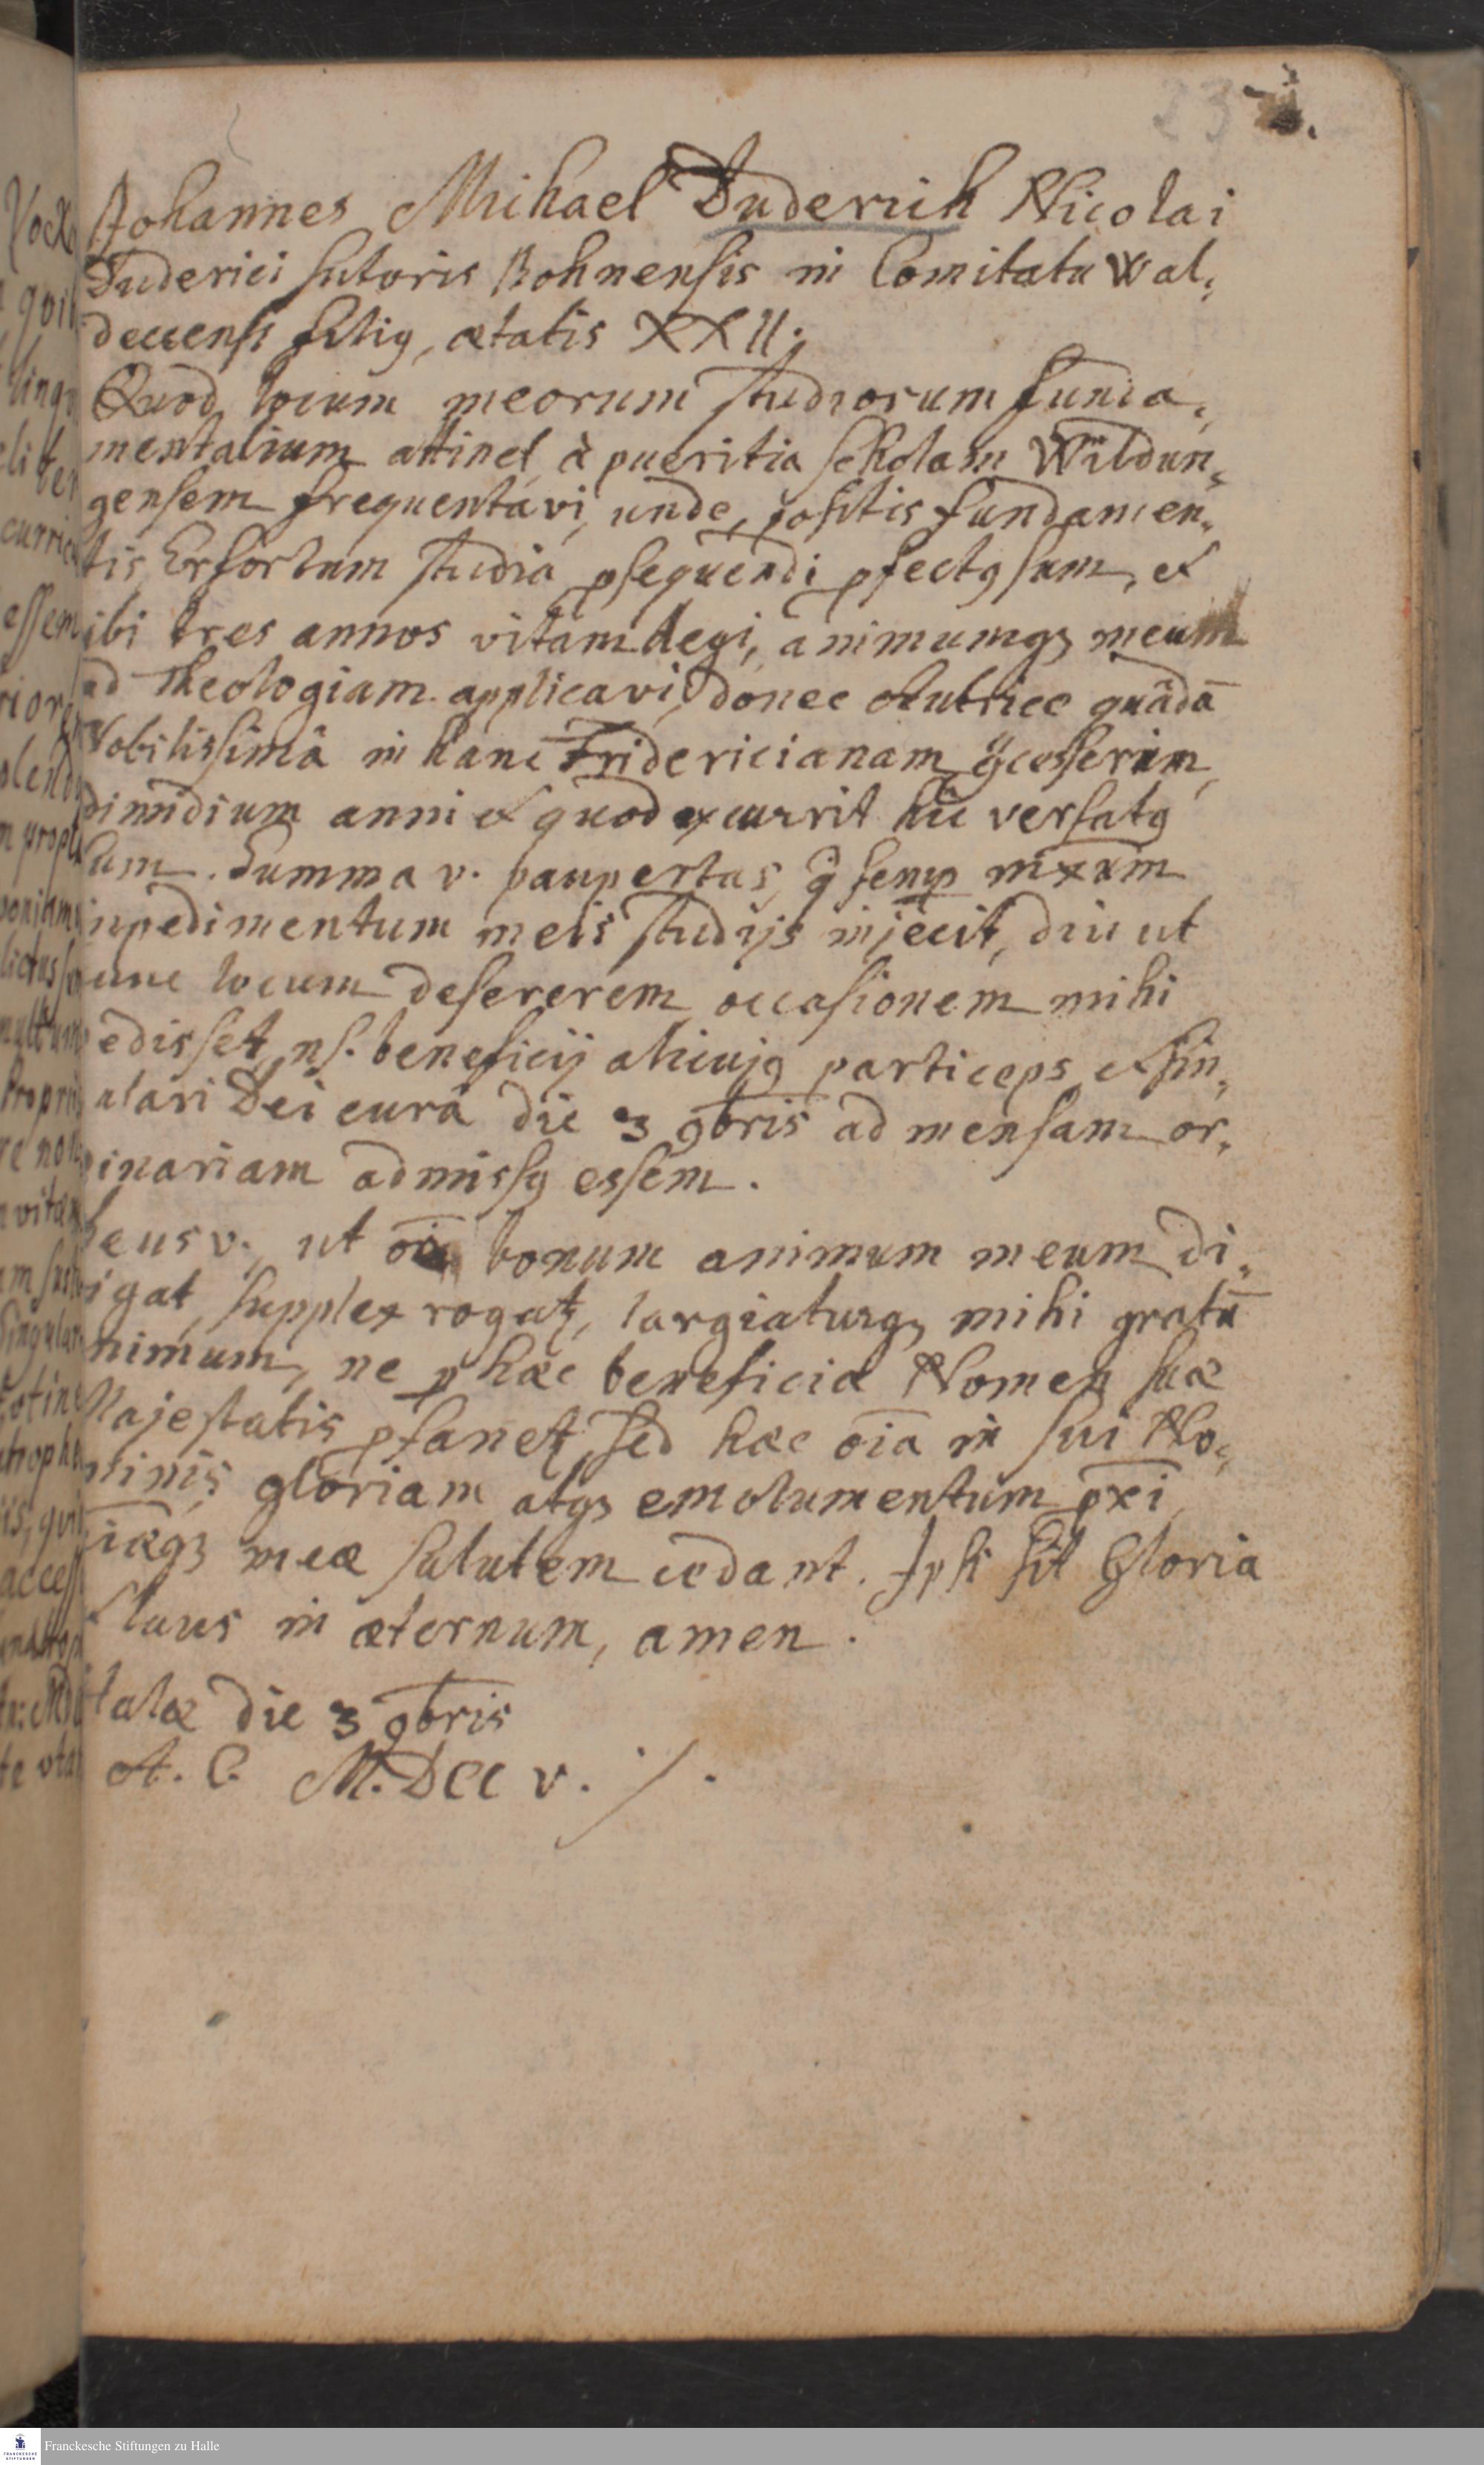 23
Johannes Michael Duderich Nicolai
Duderici sutoris Rohnensis in Comitatu Wal,
deccensi filiꝰ, ætatis XXII.
Quod locum meorum studiorum funda,
mentalium attinet, à pueritia scholam Wildun,
gensem frequentavi, unde, positis fundamen,
tis Erfortum studia psequendi pfectꝰ sum, et
ibi tres annos vitam degi, animumqꝫ meum
ad Theologiam applicavi, donec Nutrice quâdā
Nobilissimâ in hanc Fridericianam
dimidium anni et quod excurrit hîc versatꝰ
sum. Summa v. paupertas, semp mxxm
inpedimentum meis studijs injecit, diu ut
unc locum desererem occasionem mihi
edisset, ns. beneficij alicujꝰ particeps et sin,
ulari Dei curâ die 3 9bris ad mensam or,
inariam admissꝰ essem.
eus v., ut bonum animum meum di,
igat, supplex rogat, largiaturqꝫ mihi gratū
nimum, ne p hæc beneficia Nomen suæ
Majestatis pfanet, sed hæc oīa in sui No,
minis gloriam atqꝫ emolumentum pxi
iæqꝫ meæ salutem cedant. Ipsi sit Gloria
laus in æternum, amen.
alæ die 3 9bris
A. C. M.DCC v. /.
Franckesche Stiftungen zu Halle